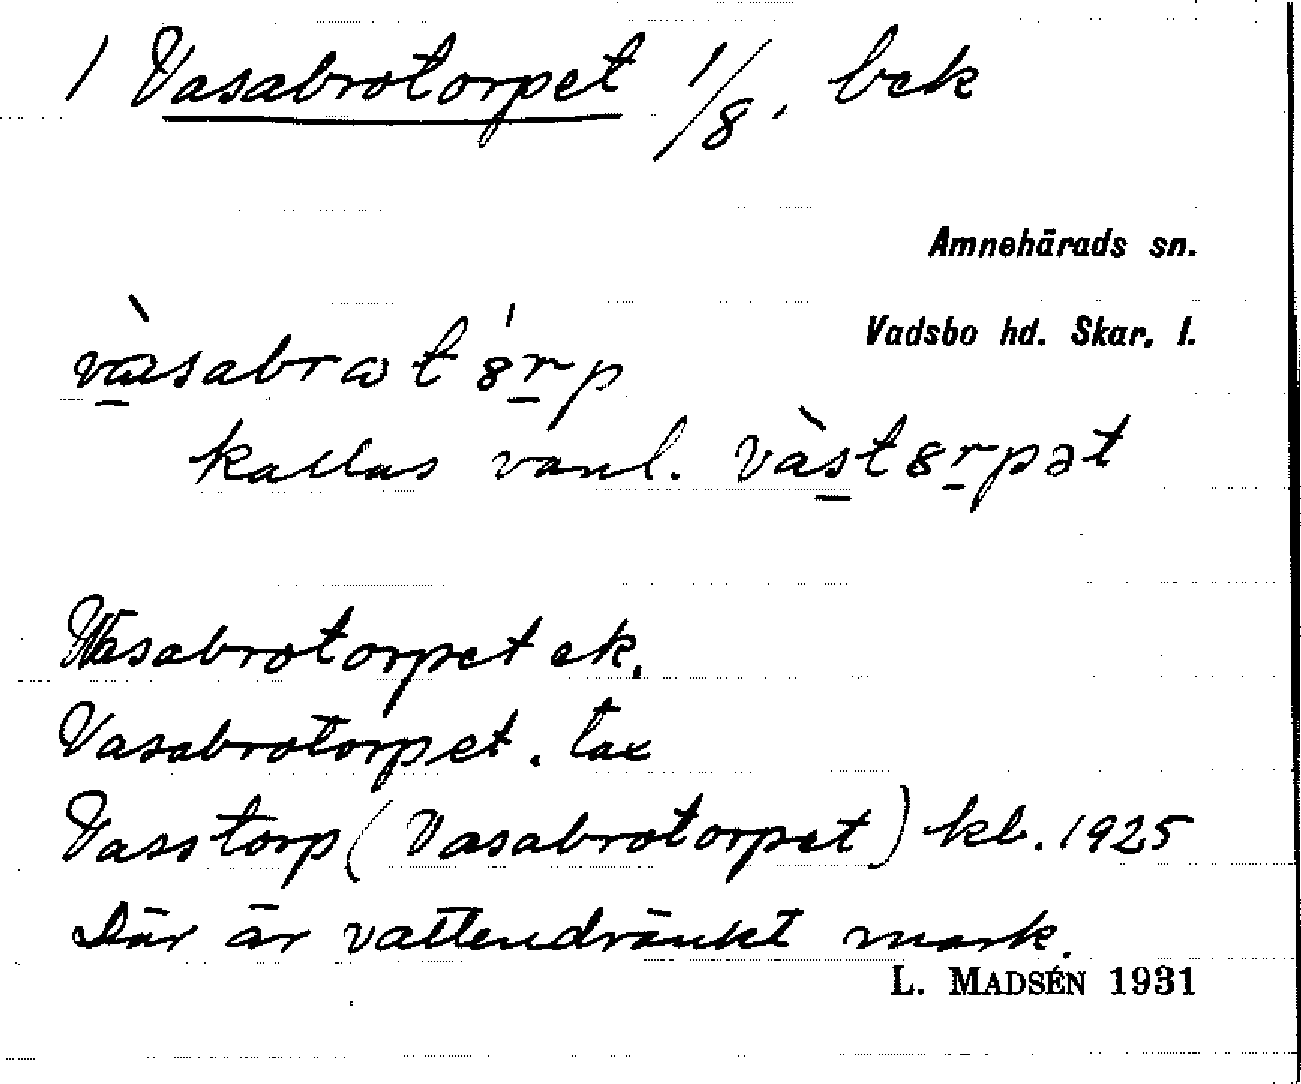 1 Vasabrotorpet 1/8. bek
Amnehärads sn.
Vadsbo hd. Skar. l.
kallas vanl.
Wasabrotorpet ek.
Vasabrotorpet. tax
Vasstorp (Vasabrotorpet) kb. 1925
Där är vattendränkt mark.
L. MADSÉN 1931